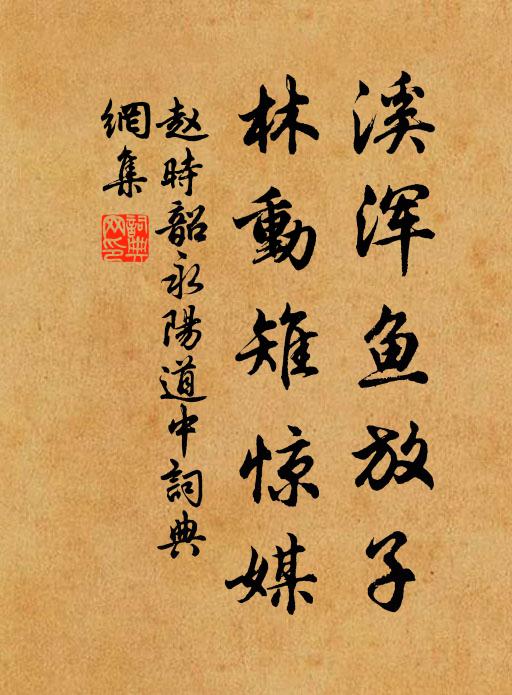 溪浑鱼放子
林動雉惊媒
赵時韶永陽道中詞典
網集
詞典網印